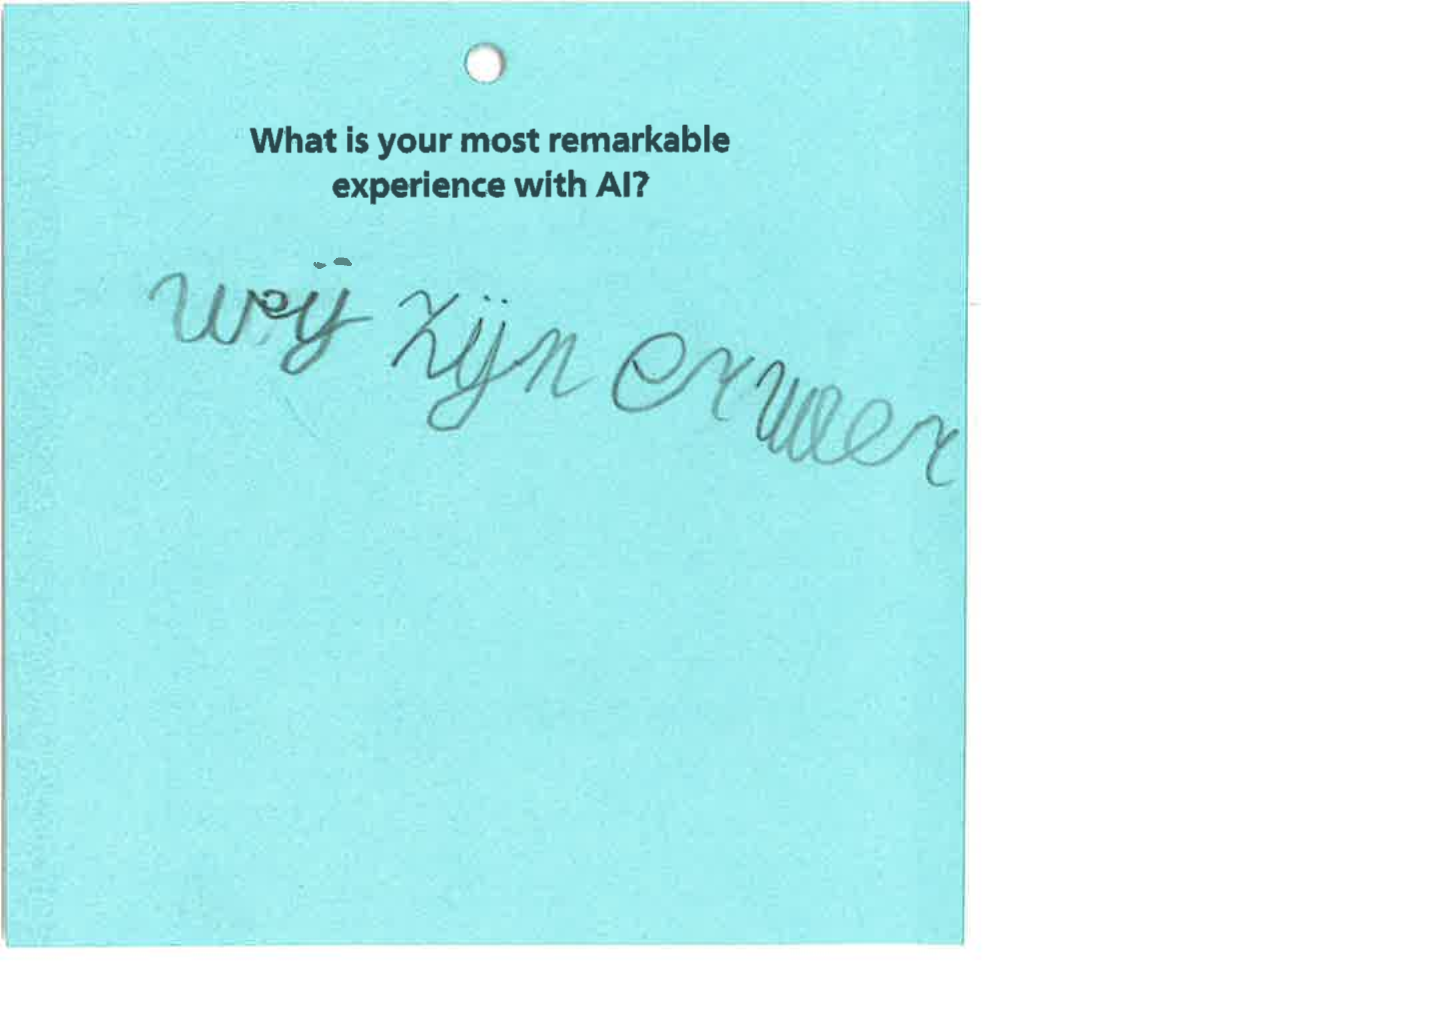 What is your most remarkable
experience with AI?
wij zijn er weer